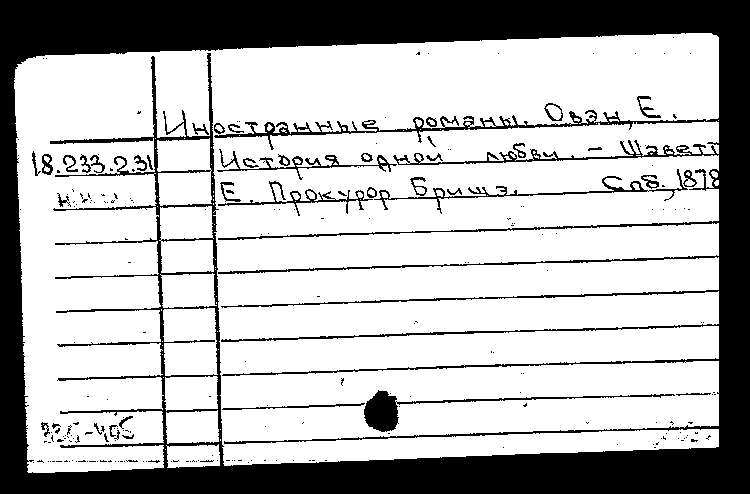 Иностранные романы. Ован, Е.
18.233.2.31 История одной любви. - Шаветт
Е. Прокурор Бришэ. Спб., 1878
336-405